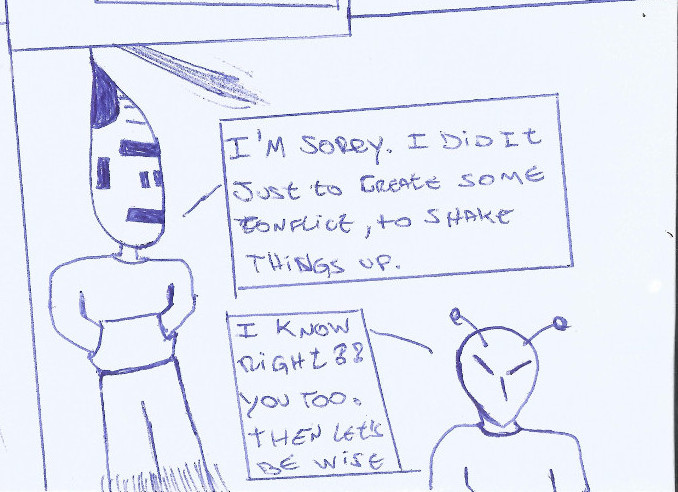 I'M SORRY. I DID IT
JUST TO CREATE SOME
CONFLICT, TO SHAKE
THINGS UP.
I KNOW
RIGHT??
YOU TOO.
THEN LET'S
BE WISE